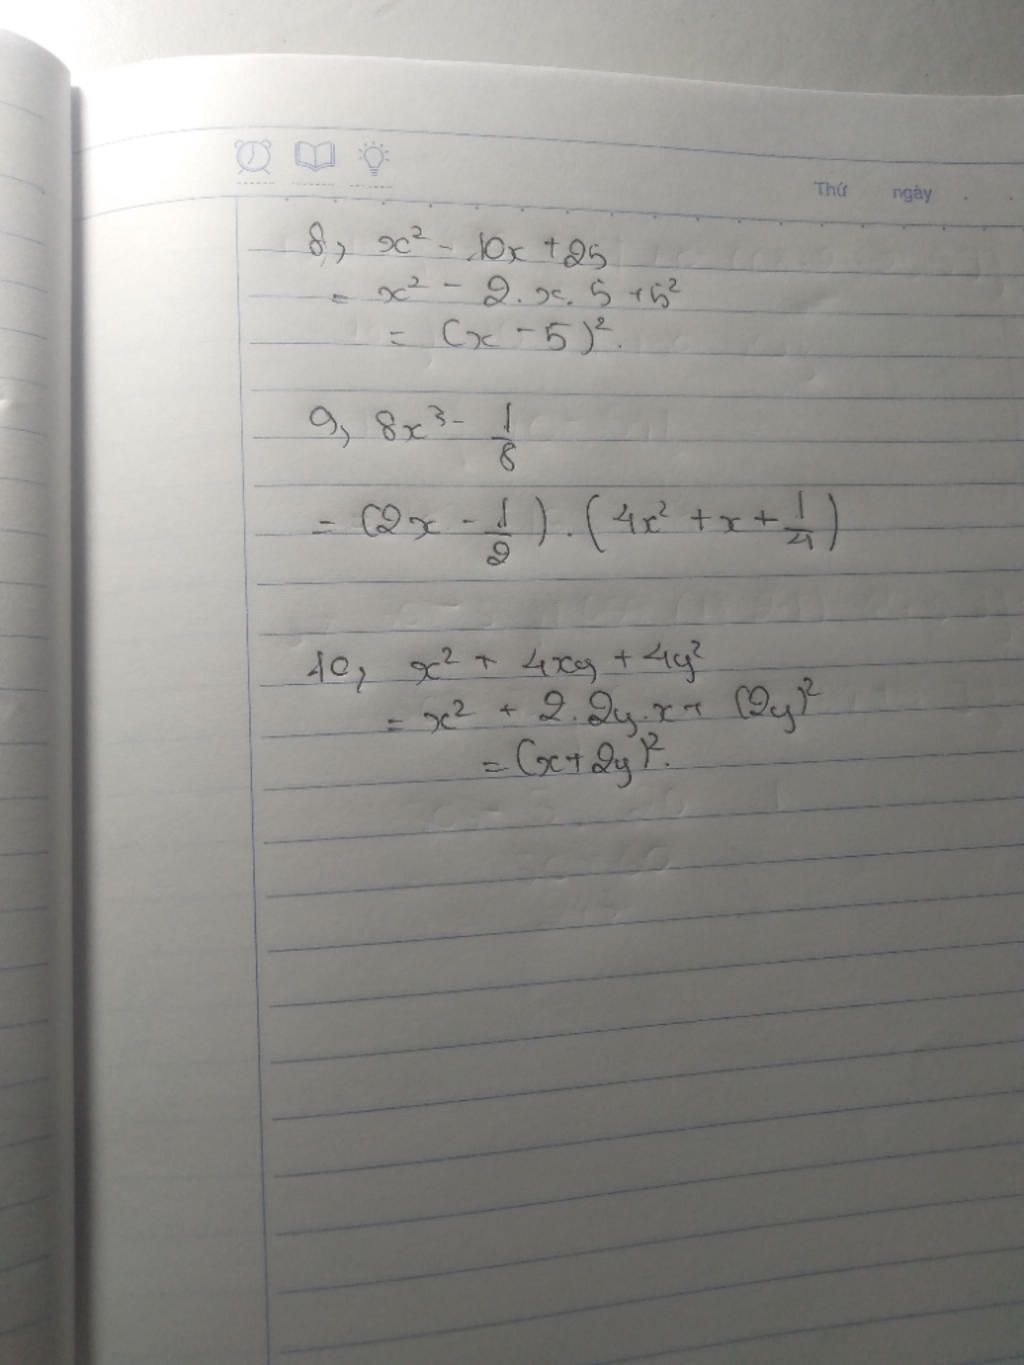 Thứ ngày
8, x² - 10x + 25
= x² - 2.x.5 + 5²
= (x - 5)².
9, 8x³ - 1/8
= (2x - 1/2).(4x² + x + 1/4)
10, x² + 4xy + 4y²
= x² + 2.2y.x + (2y)²
= (x + 2y)².